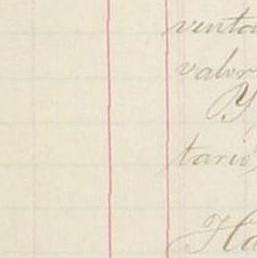 venta
valor
Y
tario
Ha